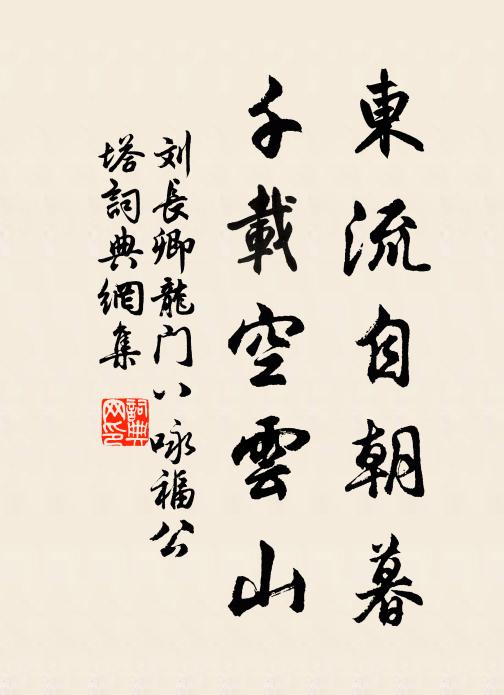 東流自朝暮
千載空雲山
刘長卿龍门八咏福公
塔詞典網集
詞典网印